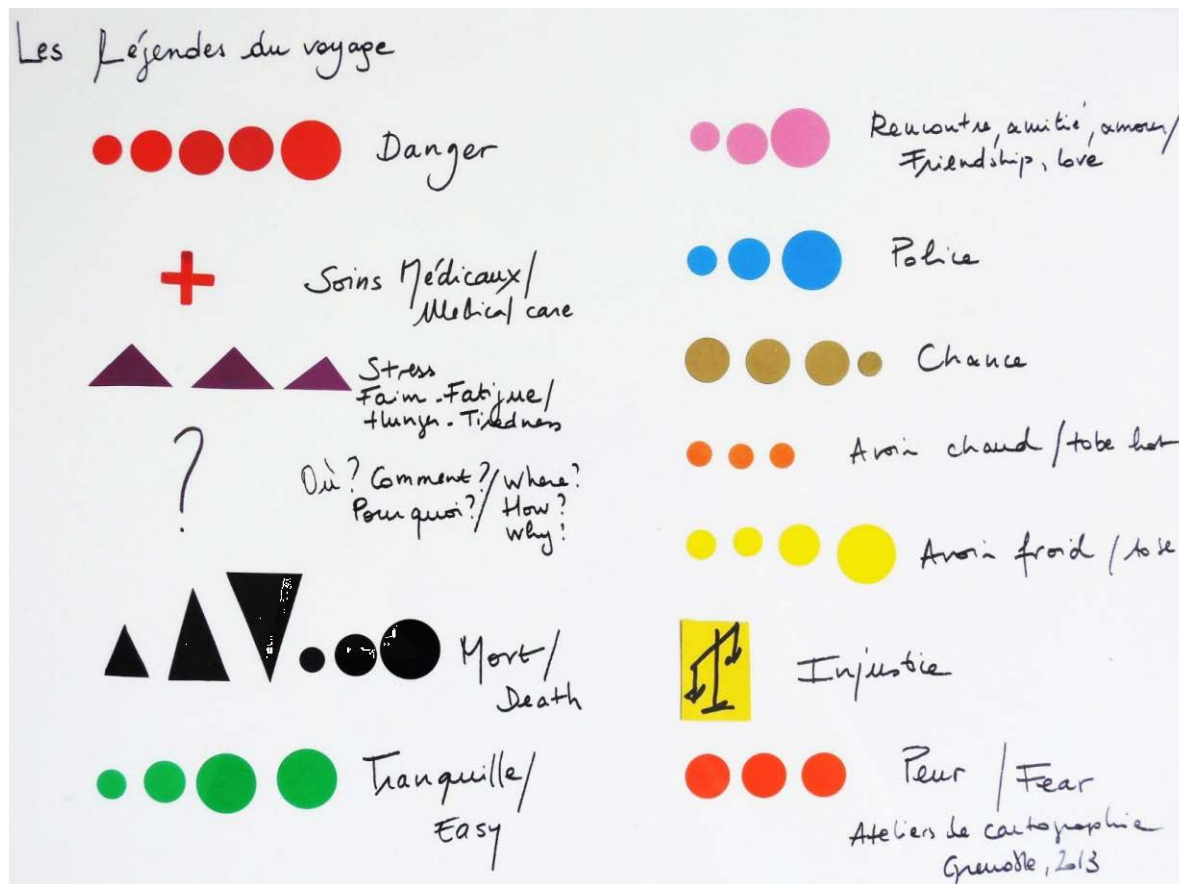 Les Légendes du voyage
Danger
Soins Médicaux/
Medical care
Stress
Faim - Fatigue/
Hunger - Tiredness
?
Où? Comment?/Where?
Pourquoi?/How?
Why?
Mort/
Death
Tranquille/
Easy
Rencontre, amitié, amour/
Friendship, love
Police
Chance
Avoir chaud / to be hot
Avoir froid / to be
Injustice
Peur / Fear
Ateliers de cartographie
Grenoble, 2013